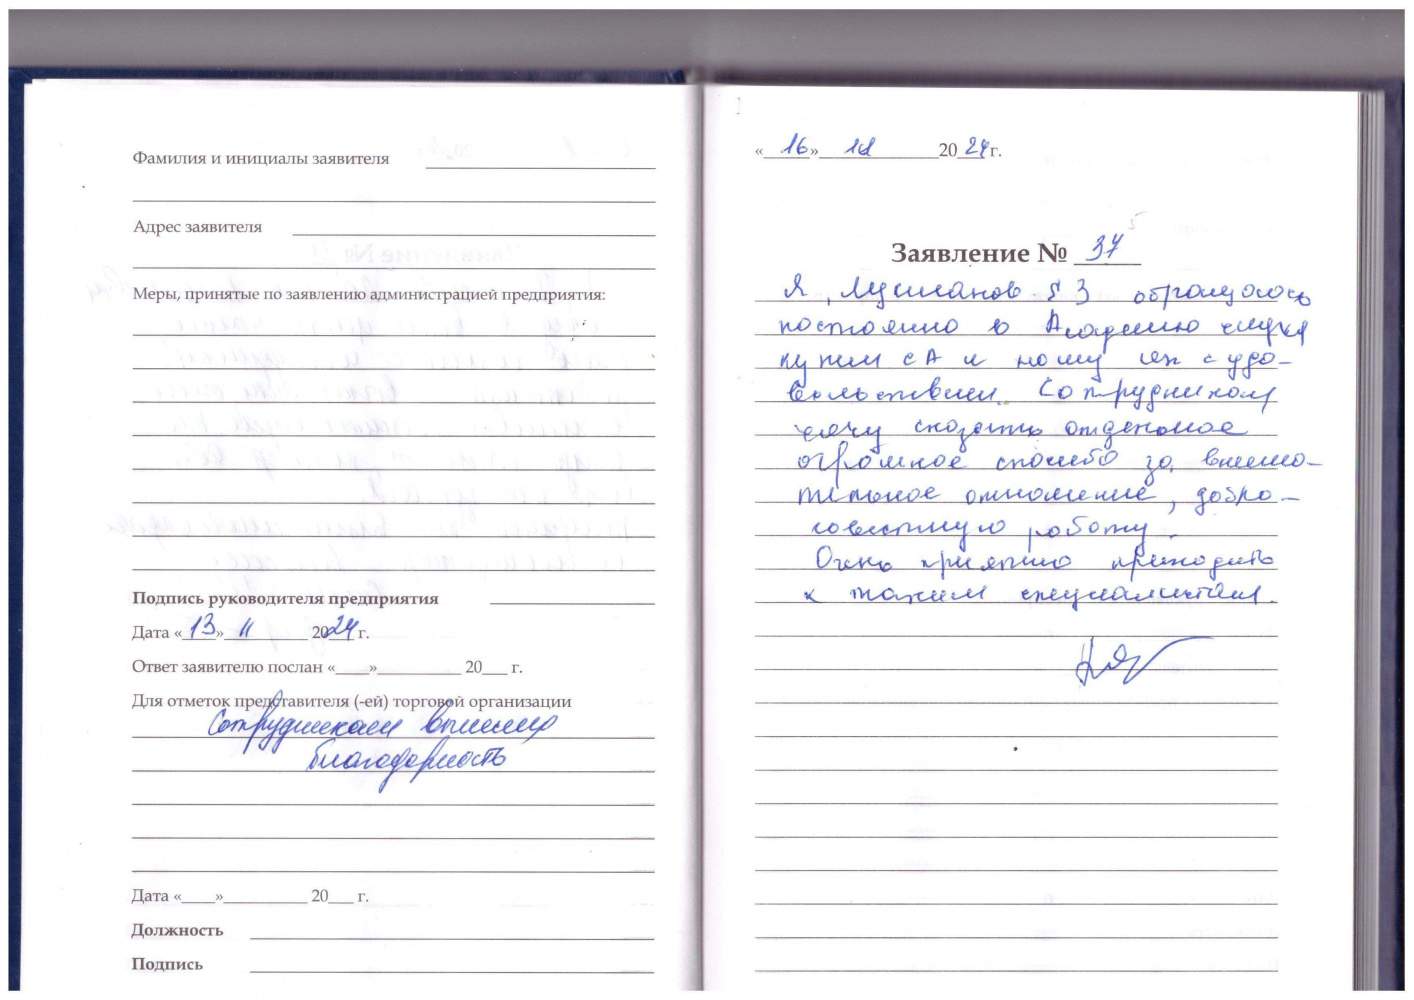 Фамилия и инициалы заявителя
Адрес заявителя
Меры, принятые по заявлению администрацией предприятия:
Подпись руководителя предприятия
Дата «13» 11 2024 г.
Ответ заявителю послан «____»__________ 20___ г.
Для отметок представителя (-ей) торговой организации
Сотрудникам
благодарность
Дата «____»__________ 20___ г.
Должность
Подпись
«16» 2024 г.
Заявление № 37
Я, обращаюсь
постоянно в Академию слуха
и с удо-
вольствием. Сотрудникам
хочу сказать отдельное
огромное спасибо за внима-
тельное отношение, добро-
совестную работу.
Очень приятно приходить
к таким специалистам.